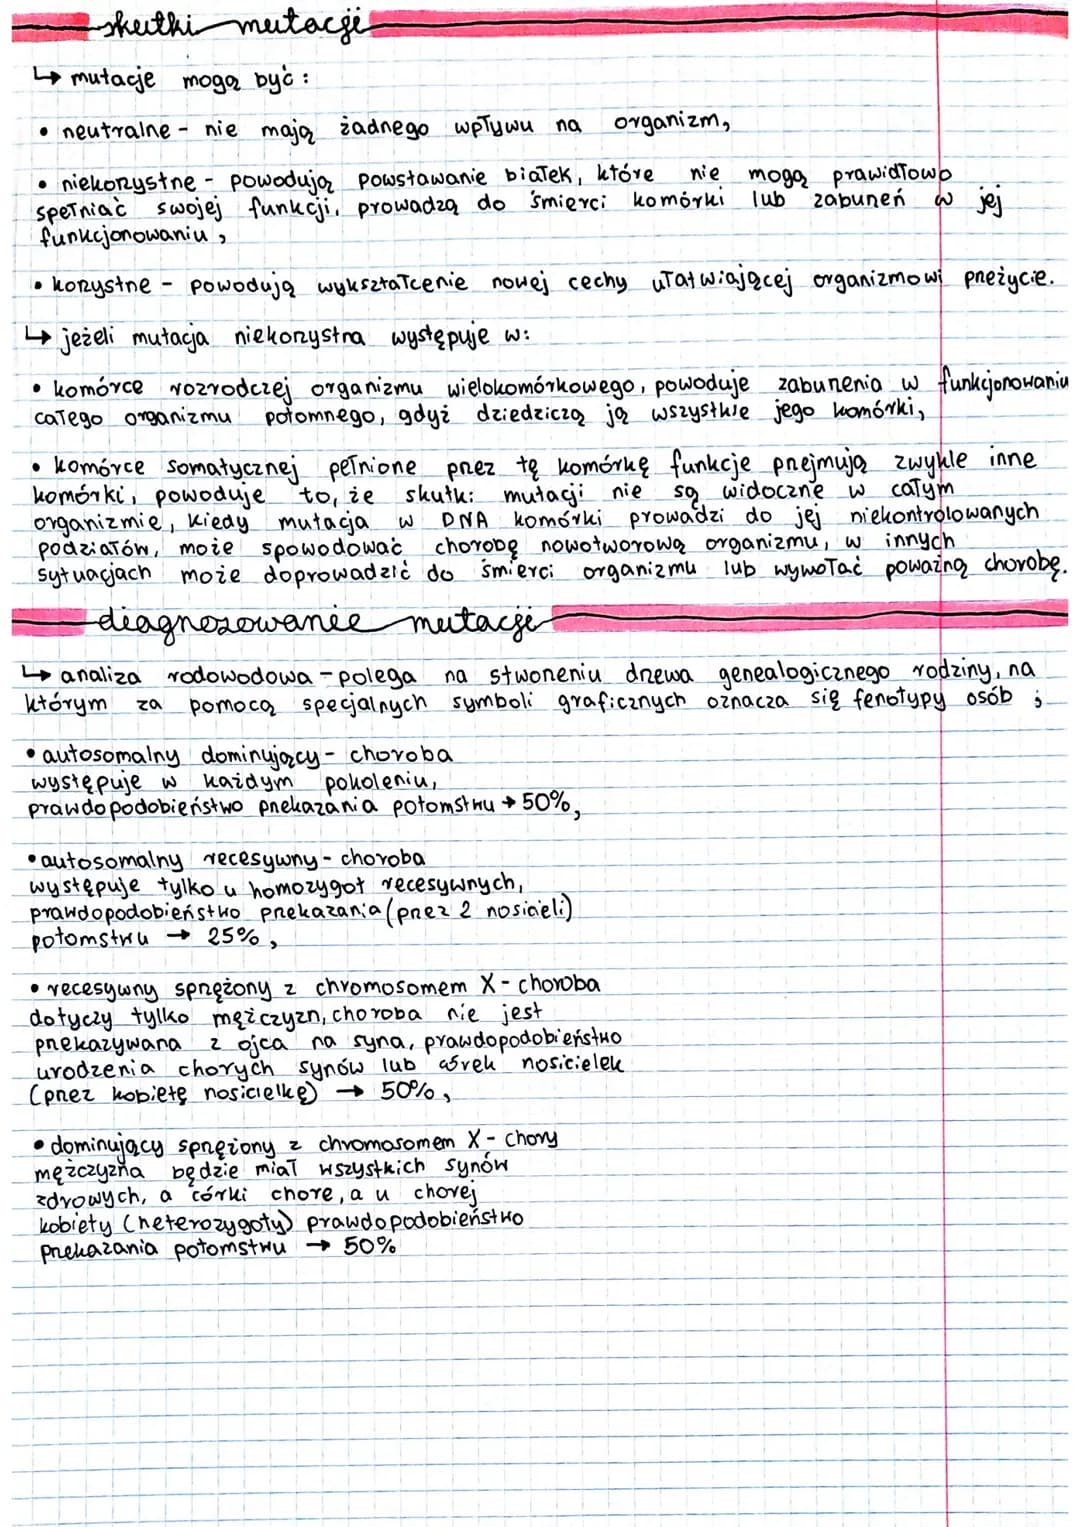 skutki mutacji
↳ mutacje mogą być:
• neutralne - nie mają żadnego wpływu na organizm,
• niekorzystne - powodują powstawanie białek, które nie mogą prawidłowo
spełniać swojej funkcji, prowadzą do śmierci komórki lub zaburzeń w jej
funkcjonowaniu,
• korzystne - powodują wykształcenie nowej cechy ułatwiającej organizmowi przeżycie.
↳ jeżeli mutacja niekorzystna występuje w:
• komórce rozrodczej organizmu wielokomórkowego, powoduje zaburzenia w funkcjonowaniu
całego organizmu potomnego, gdyż dziedziczą ją wszystkie jego komórki,
• komórce somatycznej pełnione przez tę komórkę funkcje przejmują zwykle inne
komórki, powoduje to, że skutki mutacji nie są widoczne w całym
organizmie, kiedy mutacja w DNA komórki prowadzi do jej niekontrolowanych
podziałów, może spowodować chorobę nowotworową organizmu, w innych
sytuacjach może doprowadzić do śmierci organizmu lub wywołać poważną chorobę.
diagnozowanie mutacji
↳ analiza rodowodowa - polega na stworzeniu drzewa genealogicznego rodziny, na
którym za pomocą specjalnych symboli graficznych oznacza się fenotypy osób ;
• autosomalny dominujący - choroba
występuje w każdym pokoleniu,
prawdopodobieństwo przekazania potomstwu → 50%,
• autosomalny recesywny - choroba
występuje tylko u homozygot recesywnych,
prawdopodobieństwo przekazania (przez 2 nosicieli)
potomstwu → 25%,
• recesywny sprzężony z chromosomem X - choroba
dotyczy tylko mężczyzn, choroba nie jest
przekazywana z ojca na syna, prawdopodobieństwo
urodzenia chorych synów lub córek nosicielek
(przez kobietę nosicielkę) → 50%,
• dominujący sprzężony z chromosomem X - chory
mężczyzna będzie miał wszystkich synów
zdrowych, a córki chore, a u chorej
kobiety (heterozygoty) prawdopodobieństwo
przekazania potomstwu → 50%